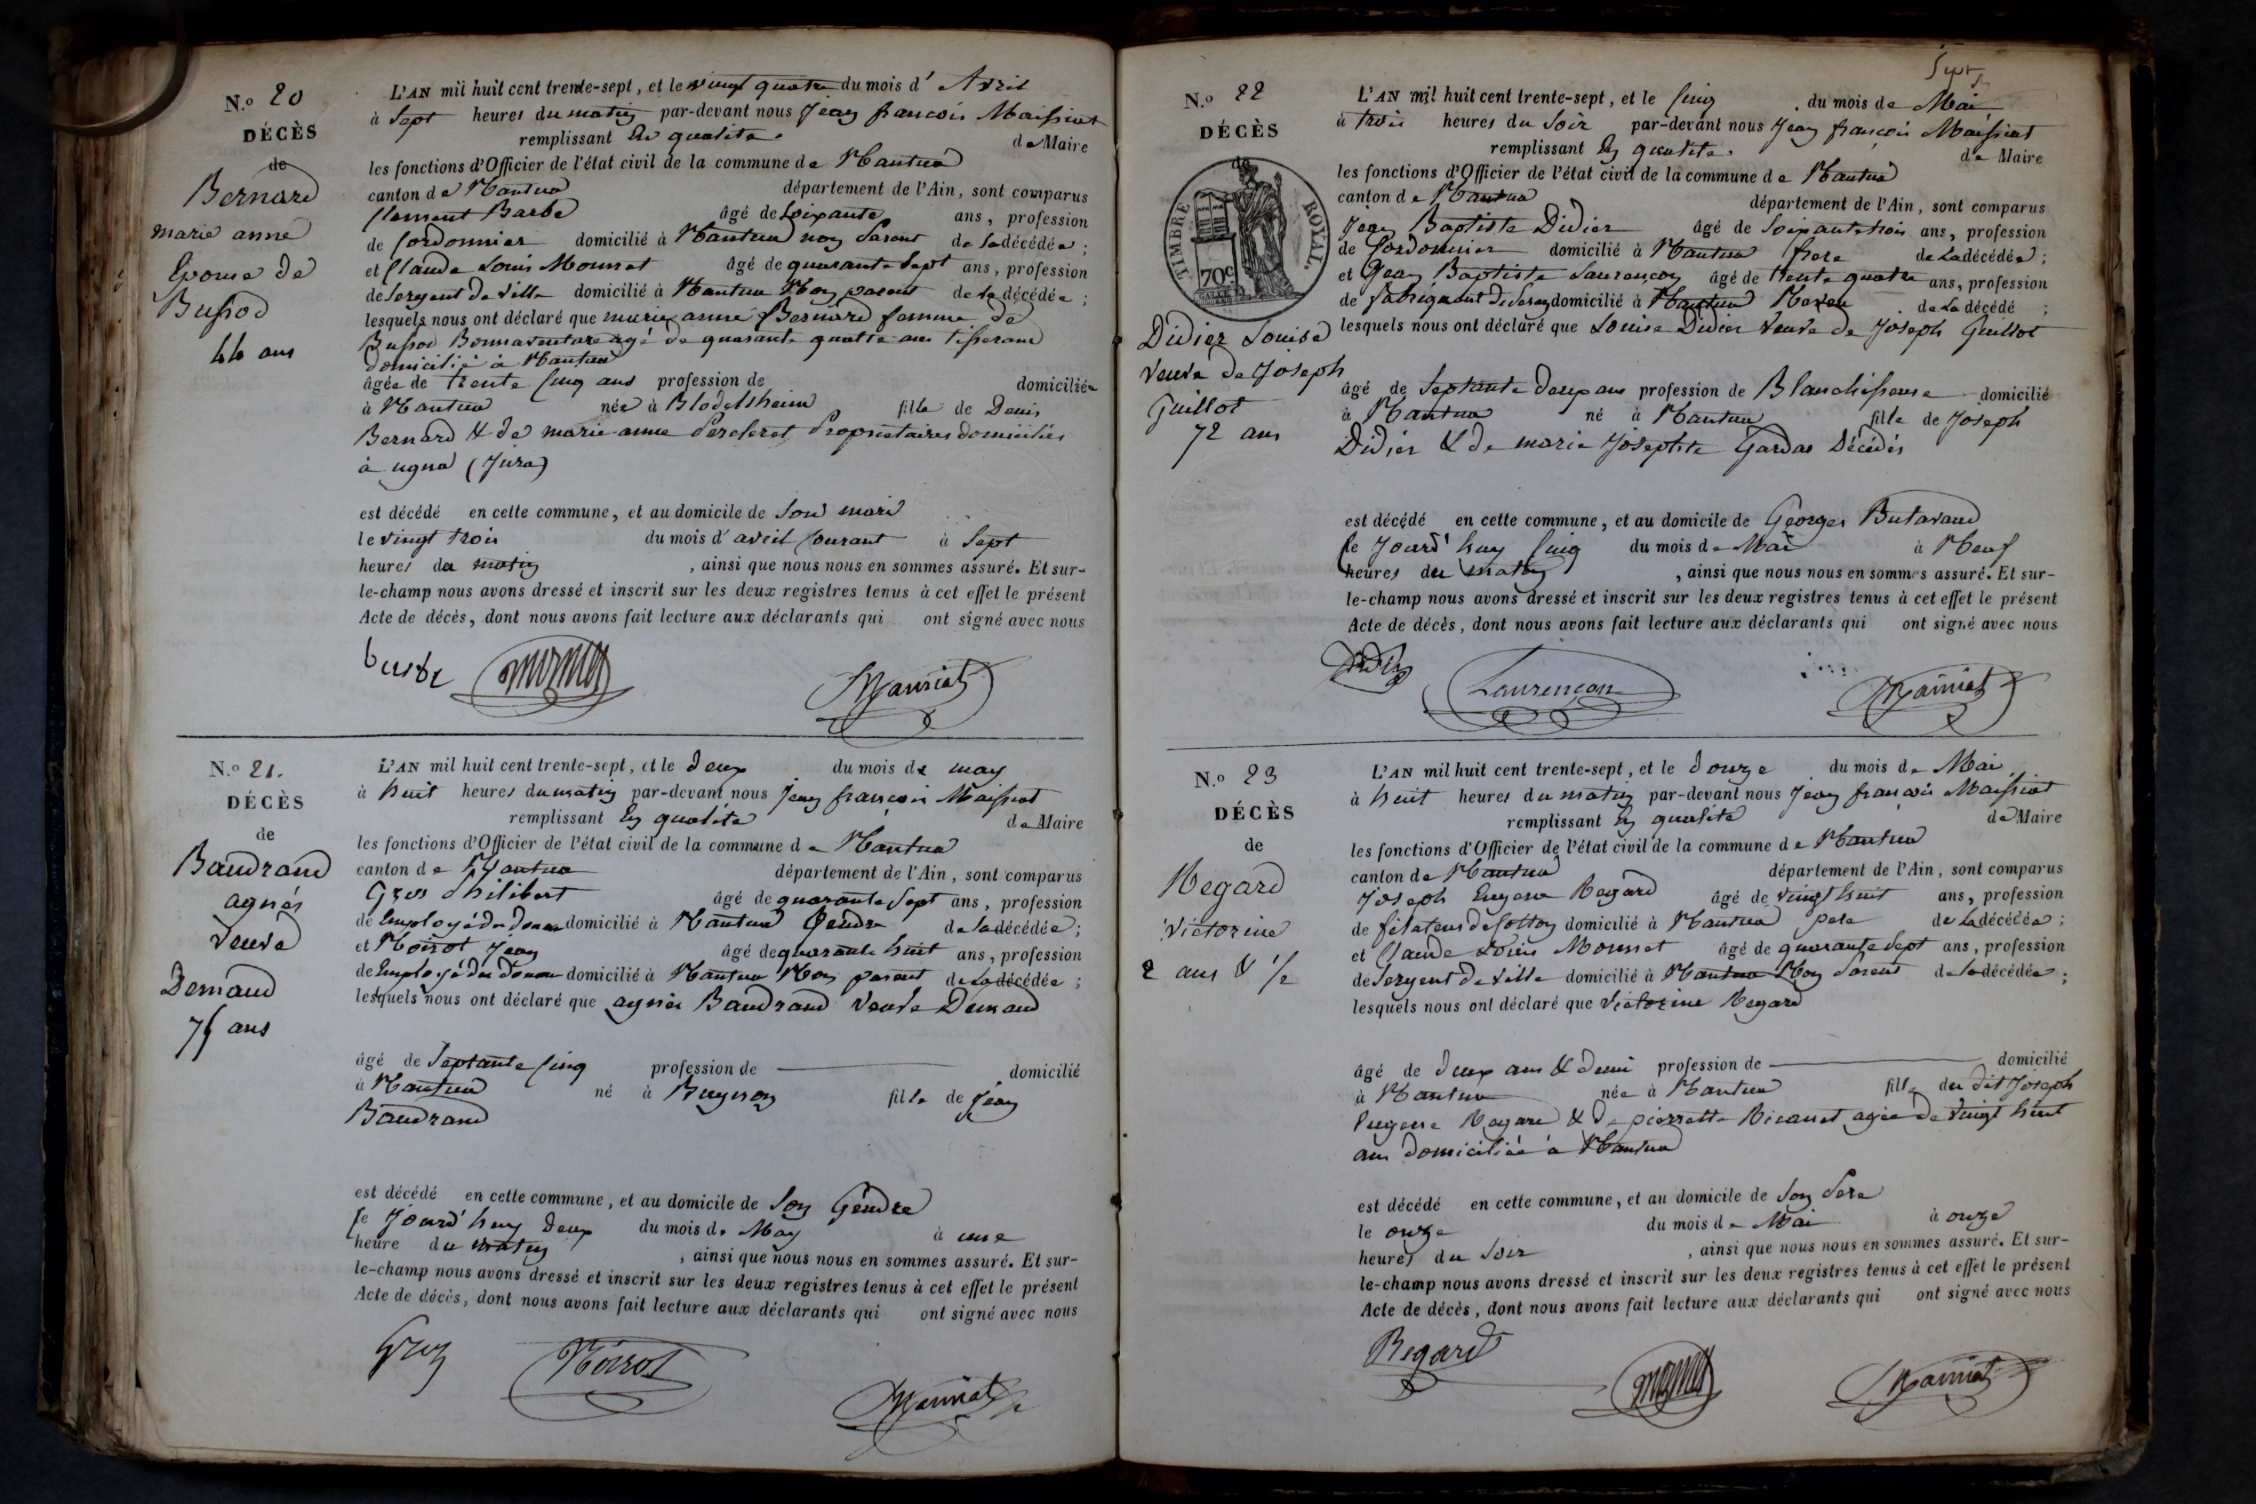 N.º 20
DÉCÈS
de
Bernard
marie anne
Epouse de
Bussod
44 ans
L'AN mil huit cent trente-sept, et le vingt quatre du mois d' Avril
à Sept heures du matin par-devant nous Jean francois Maissiat
remplissant En qualité de Maire
les fonctions d'Officier de l'état civil de la commune de Nantua
canton de Nantua département de l'Ain, sont comparus
Clement Barbe âgé de Soixante ans, profession
de Cordonnier domicilié à Nantua non Parent de la décédée;
et Claude Louis Mounet âgé de quarante Sept ans, profession
de Sergent de Ville domicilié à Nantua Non parent de la décédée;
lesquels nous ont déclaré que marie anne Bernard femme de
Bussod Bonnaventure agé de quarante quatre ans tisserand
domicilié à Nantua
âgée de trente Cinq ans profession de domiciliée
à Nantua née à Blodelsheim fille de Denis
Bernard & de marie anne Percleret Proprietaires domiciliés
à ugna (Jura)
est décédé en cette commune, et au domicile de Son mari
le vingt trois du mois d'avril Courant à Sept
heures du matin, ainsi que nous nous en sommes assuré. Et sur-
le-champ nous avons dressé et inscrit sur les deux registres tenus à cet effet le présent
Acte de décès, dont nous avons fait lecture aux déclarants qui ont signé avec nous
barbe Maissiat
N.º 21.
DÉCÈS
de
Baudrand
agnés
Veuve
Demaud
75 ans
L'AN mil huit cent trente-sept, et le deux du mois de may
à huit heures du matin par-devant nous Jean françois Maissiat
remplissant En qualité de Maire
les fonctions d'Officier de l'état civil de la commune de Nantua
canton de Nantua département de l'Ain, sont comparus
Gros Philibert âgé de quarante Sept ans, profession
de Employé du douan domicilié à Nantua Gendre de la décédée;
et Noirot Jean âgé de quarante huit ans, profession
de Employé du douan domicilié à Nantua Non parent de la décédée;
lesquels nous ont déclaré que agnés Baudrand Veuve Demaud
âgé de Septante Cinq profession de domicilié
à Nantua né à Bugnon fille de Jean
Baudrand
est décédé en cette commune, et au domicile de Son Gendre
le Jourd'huy deux du mois de May à une
heure du matin, ainsi que nous nous en sommes assuré. Et sur-
le-champ nous avons dressé et inscrit sur les deux registres tenus à cet effet le présent
Acte de décès, dont nous avons fait lecture aux déclarants qui ont signé avec nous
Gros Noirot Maissiat
Sept
N.º 22
DÉCÈS
de
TIMBRE ROYAL.
70c
Didier Louise
Veuve de Joseph
Guillot
72 ans
L'AN mil huit cent trente-sept, et le Cinq du mois de Mai
à trois heures du Soir par-devant nous Jean françois Maissiat
remplissant En qualité de Maire
les fonctions d'Officier de l'état civil de la commune de Nantua
canton de Nantua département de l'Ain, sont comparus
Jean Baptiste Didier âgé de Soixante trois ans, profession
de Cordonnier domicilié à Nantua frere de la décédée;
et Jean Baptiste Laurençon âgé de trente quatre ans, profession
de fabriquant de Seran domicilié à Nantua Neveu de la décédé;
lesquels nous ont déclaré que Louise Didier Veuve de Joseph Guillot
âgé de Septante deux ans profession de Blanchisseuse domicilié
à Nantua né à Nantua fille de Joseph
Didier & de marie Josephte Gardas Décédés
est décédé en cette commune, et au domicile de Georges Butavand
le Jourd'huy Cinq du mois de Mai à Neuf
heures du matin, ainsi que nous nous en sommes assuré. Et sur-
le-champ nous avons dressé et inscrit sur les deux registres tenus à cet effet le présent
Acte de décès, dont nous avons fait lecture aux déclarants qui ont signé avec nous
Laurençon Maissiat
N.º 23
DÉCÈS
de
Regard
Victorine
2 ans & 1/2
L'AN mil huit cent trente-sept, et le douze du mois de Mai
à huit heures du matin par-devant nous Jean françois Maissiat
remplissant En qualité de Maire
les fonctions d'Officier de l'état civil de la commune de Nantua
canton de Nantua département de l'Ain, sont comparus
Joseph Eugene Regard âgé de vingt huit ans, profession
de filateur de Cotton domicilié à Nantua pere de la décédée;
et Claude Louis Mounet âgé de quarante Sept ans, profession
de Sergent de Ville domicilié à Nantua Non Parent de la décédée;
lesquels nous ont déclaré que Victorine Regard
âgé de deux ans & demi profession de domicilié
à Nantua née à Nantua fille du dit Joseph
Eugene Regard & de pierrette Ricanet agée de vingt huit
ans domiciliée à Nantua
est décédé en cette commune, et au domicile de Son Pere
le onze du mois de Mai à onze
heures du Soir, ainsi que nous nous en sommes assuré. Et sur-
le-champ nous avons dressé et inscrit sur les deux registres tenus à cet effet le présent
Acte de décès, dont nous avons fait lecture aux déclarants qui ont signé avec nous
Regard Maissiat